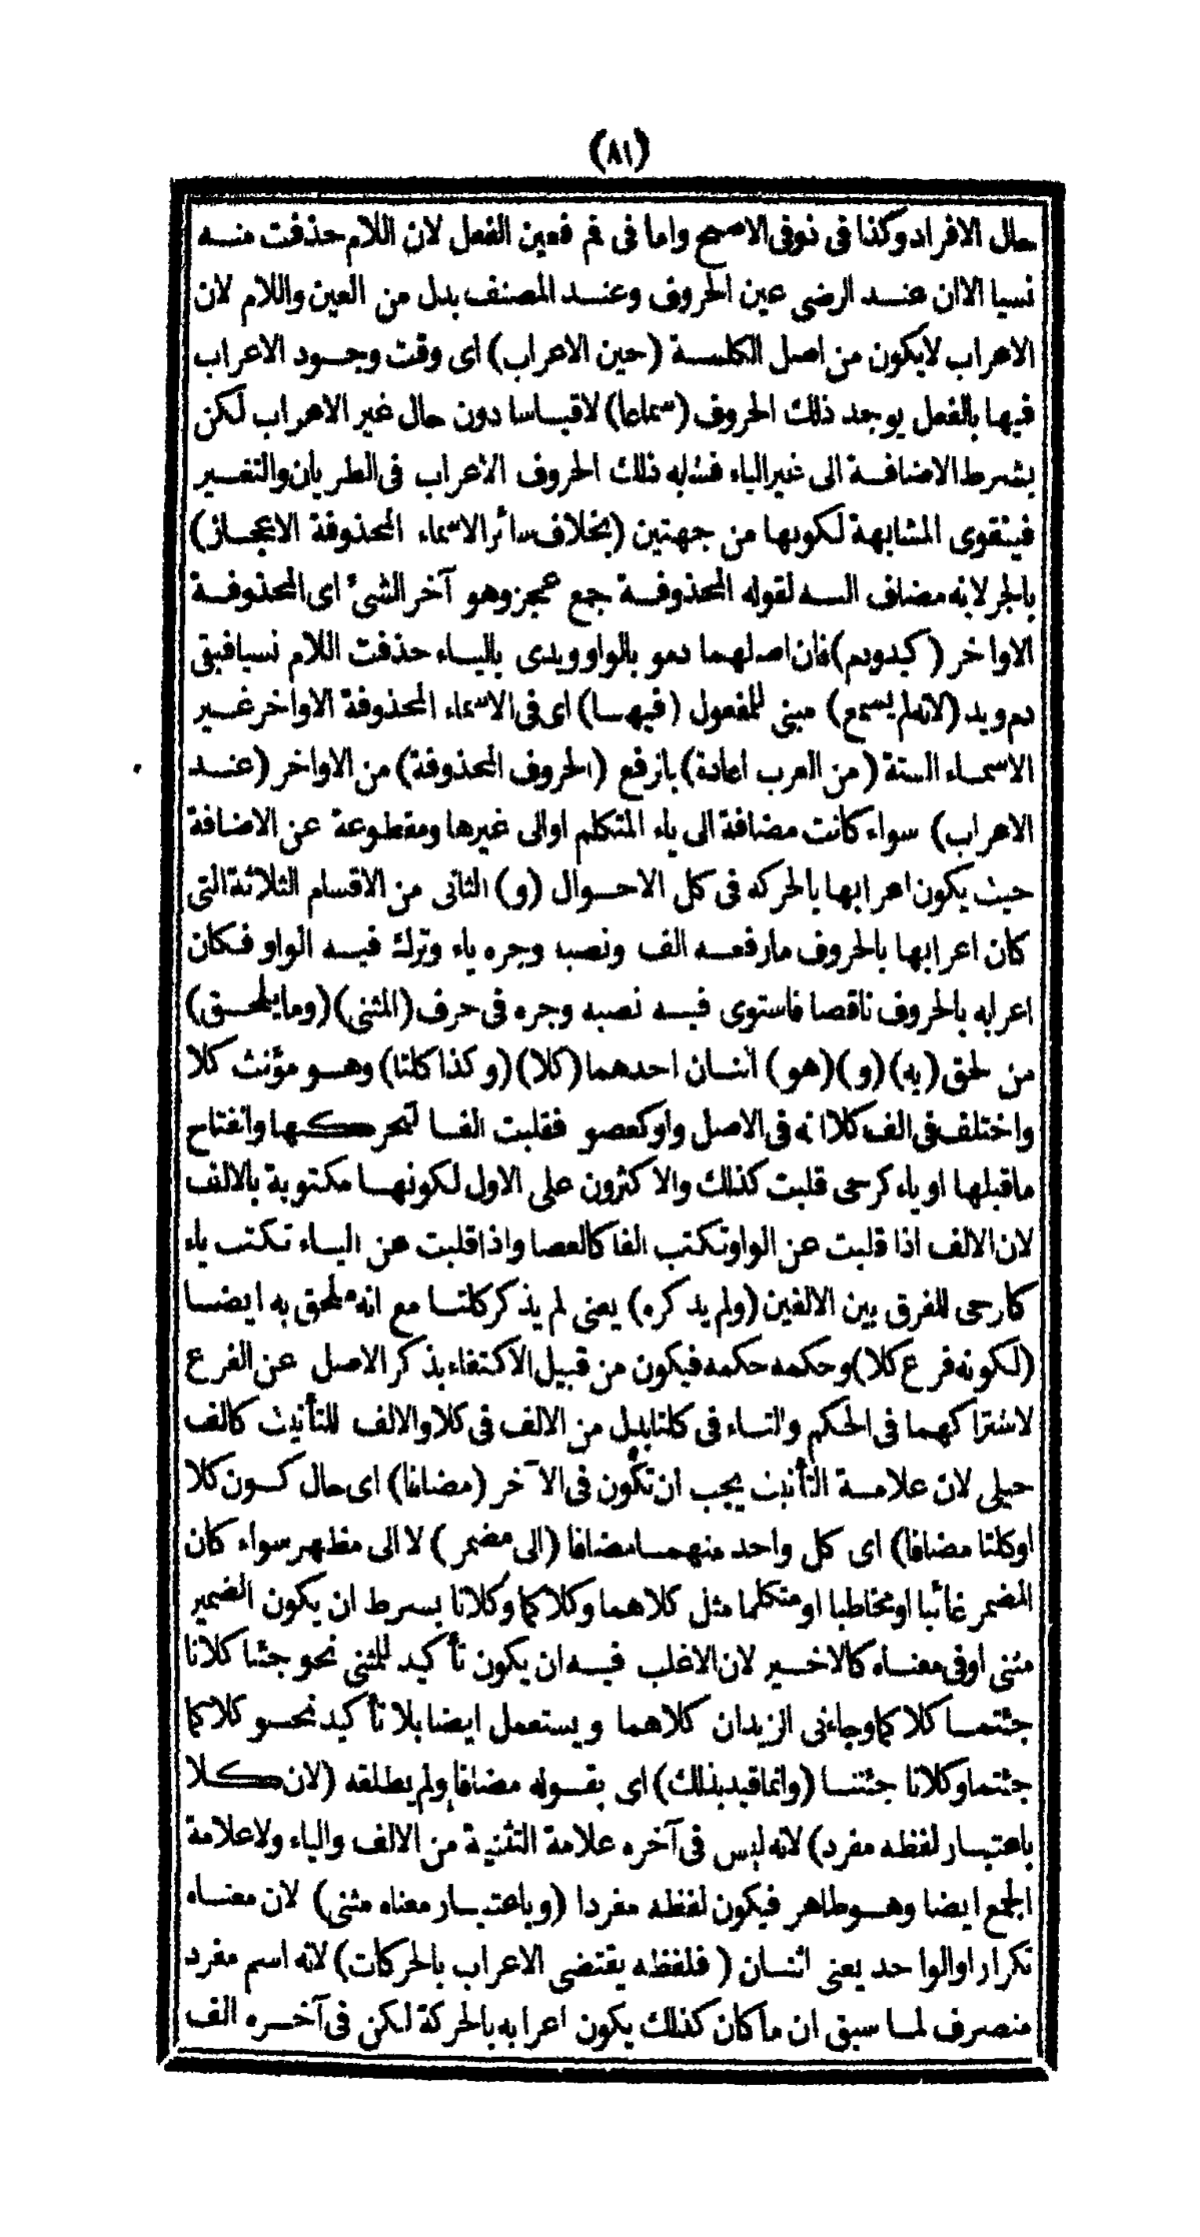 (٨١)
حال الافراد وكذا فى ذو فى الاصح واما فى فم فعين الفعل لان اللام حذفت منه
نسيا الاان عند الرضى عين الحروف وعند المصنف بدل من العين واللام لان
الاعراب لايكون من اصل الكلمة (حين الاعراب) اى وقت وجود الاعراب
فيها بالفعل يوجد ذلك الحروف (سماعا) لاقياسا دون حال غير الاعراب لكن
بشرط الاضافة الى غير الياء فشابه ذلك الحروف الاعراب فى الطريان والتغير
فيتقوى المشابهة لكونها من جهتين (بخلاف سائر الاسماء المحذوفة الاعجاز)
بالجر لانه مضاف اليه لقوله المحذوفة جمع عجز وهو آخر الشئ اى المحذوفة
الاواخر (كيدودم) فان اصلهما دمو بالواو ويدى بالياء حذفت اللام نسيا فبقى
دم ويد (لانه لم يسمع) مبنى للمفعول (فيها) اى فى الاسماء المحذوفة الاواخر غير
الاسماء الستة (من العرب اعادة) بالرفع (الحروف المحذوفة) من الاواخر (عند
الاعراب) سواء كانت مضافة الى ياء المتكلم اوالى غيرها ومقطوعة عن الاضافة
حيث يكون اعرابها بالحركة فى كل الاحوال (و) الثانى من الاقسام الثلاثة التى
كان اعرابها بالحروف مارفعه الف ونصبه وجره ياء وترك فيه الواو فكان
اعرابه بالحروف ناقصا فاستوى فيه نصبه وجره فى حرف (المثنى) (ومايلحق)
من لحق (به) (و) (هو) اثنان احدهما (كلا) (وكذا كلتا) وهو مؤنث كلا
واختلف فى الف كلا انه فى الاصل واو كعصو فقلبت الفا لتحركها وانفتاح
ماقبلها او ياء كرحى قلبت كذلك والاكثرون على الاول لكونها مكتوبة بالالف
لان الالف اذا قلبت عن الواو تكتب الفا كالعصا واذا قلبت عن الياء تكتب ياء
كارحى للفرق بين الالفين (ولم يذكره) يعنى لم يذكر كلتا مع انه ملحق به ايضا
(لكونه فرع كلا) وحكمه حكمه فيكون من قبيل الاكتفاء بذكر الاصل عن الفرع
لاشتراكهما فى الحكم والتاء فى كلتا بدل من الالف فى كلا والالف للتأنيث كالف
حبلى لان علامة التأنيث يجب ان تكون فى الآخر (مضافا) اى حال كون كلا
اوكلتا مضافا) اى كل واحد منهما مضافا (الى مضمر) لا الى مظهر سواء كان
المضمر غائبا اومخاطبا اومتكلما مثل كلاهما وكلاكما وكلانا بسرط ان يكون الضمير
مثنى اوفى معناه كالاخير لان الاغلب فيه ان يكون تأكيد للمثنى نحو جئنا كلانا
جئتما كلاكما وجاءنى الزيدان كلاهما ويستعمل ايضا بلا تأكيد نحو كلاكما
جئتما وكلانا جئنا (وانما قيد بذلك) اى بقوله مضافا ولم يطلقه (لان كلا
باعتبار لفظه مفرد) لانه ليس فى آخره علامة التثنية من الالف والياء ولاعلامة
الجمع ايضا وهو ظاهر فيكون لفظه مفردا (وباعتبار معناه مثنى) لان معناه
تكرار اوالواحد يعنى اثنان (فلفظه يقتضى الاعراب بالحركات) لانه اسم مفرد
منصرف لما سبق ان ماكان كذلك يكون اعرابه بالحركة لكن فى آخره الف